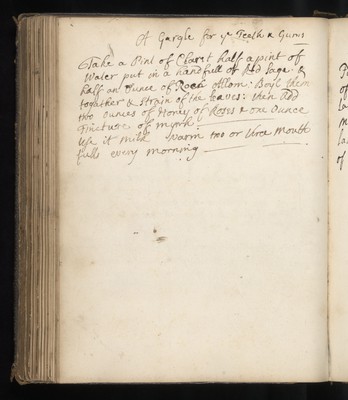 A Gargle for ye Teeth & Gums
Take a Pint of Claret half a pint of
Water put in a handfull of Red Sage &
half an ounce of Roca Allom, Boyl them
togather & Strain of the leaves: then Add
two ounces of Honey of Roses & one Ounce
Tincture of myrrh
Use it Milk Warm two or three Mouth
fulls every Morning